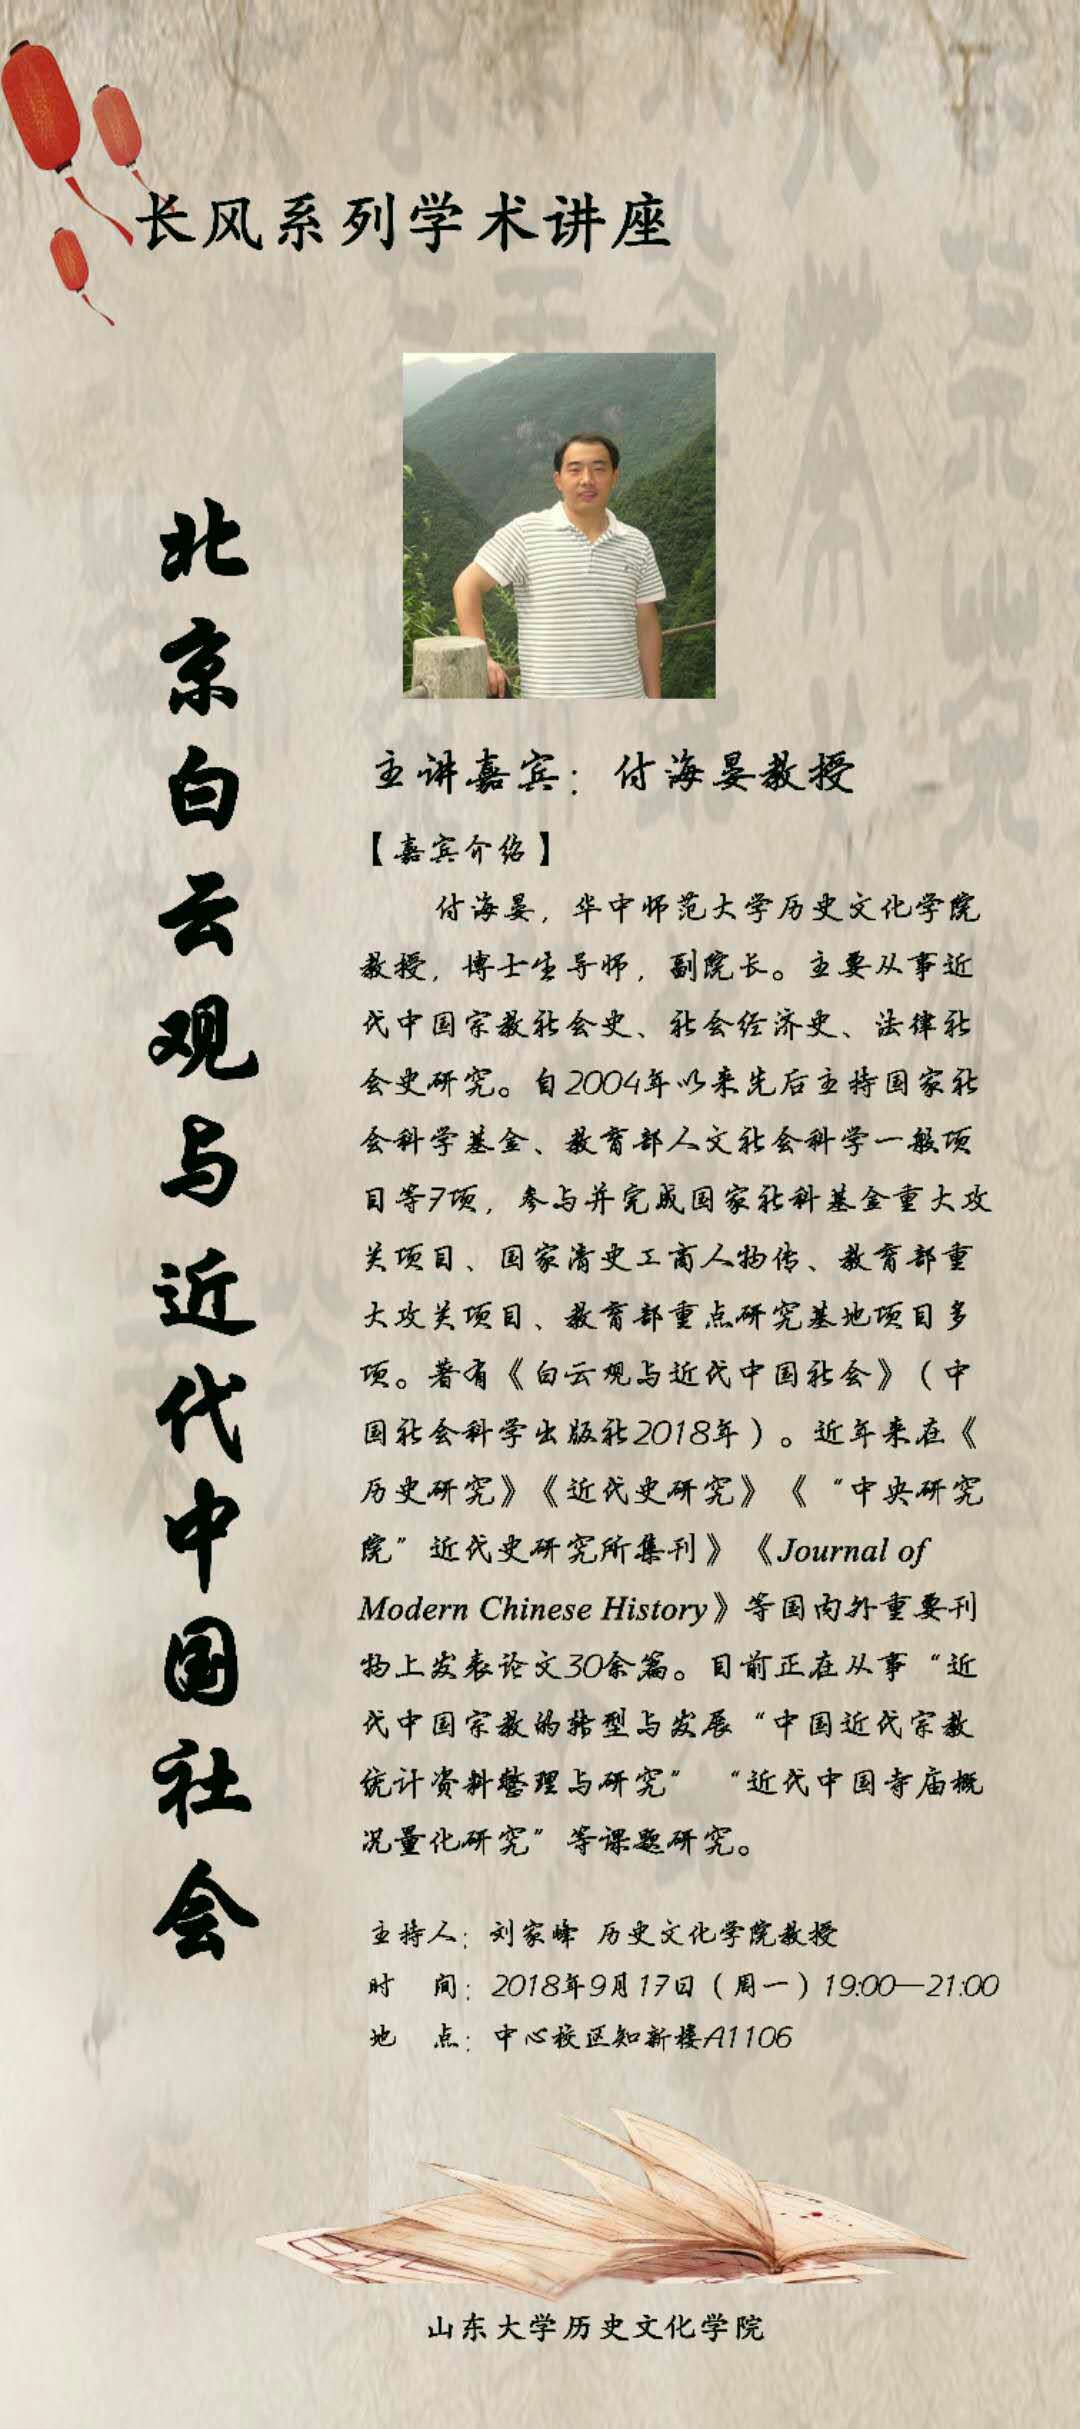 长风系列学术讲座
北京白云观与近代中国社会
主讲嘉宾：付海晏教授
【嘉宾介绍】
付海晏，华中师范大学历史文化学院
教授，博士生导师，副院长。主要从事近
代中国宗教社会史、社会经济史、法律社
会史研究。自2004年以来先后主持国家社
会科学基金、教育部人文社会科学一般项
目等7项，参与并完成国家社科基金重大攻
关项目、国家清史工商人物传、教育部重
大攻关项目、教育部重点研究基地项目多
项。著有《白云观与近代中国社会》（中
国社会科学出版社2018年）。近年来在《
历史研究》《近代史研究》《“中央研究
院”近代史研究所集刊》《Journal of
Modern Chinese History》等国内外重要刊
物上发表论文30余篇。目前正在从事“近
代中国宗教的转型与发展“中国近代宗教
统计资料整理与研究” “近代中国寺庙概
况量化研究”等课题研究。
主持人：刘家峰 历史文化学院教授
时 间：2018年9月17日（周一）19:00—21:00
地 点：中心校区知新楼A1106
山东大学历史文化学院